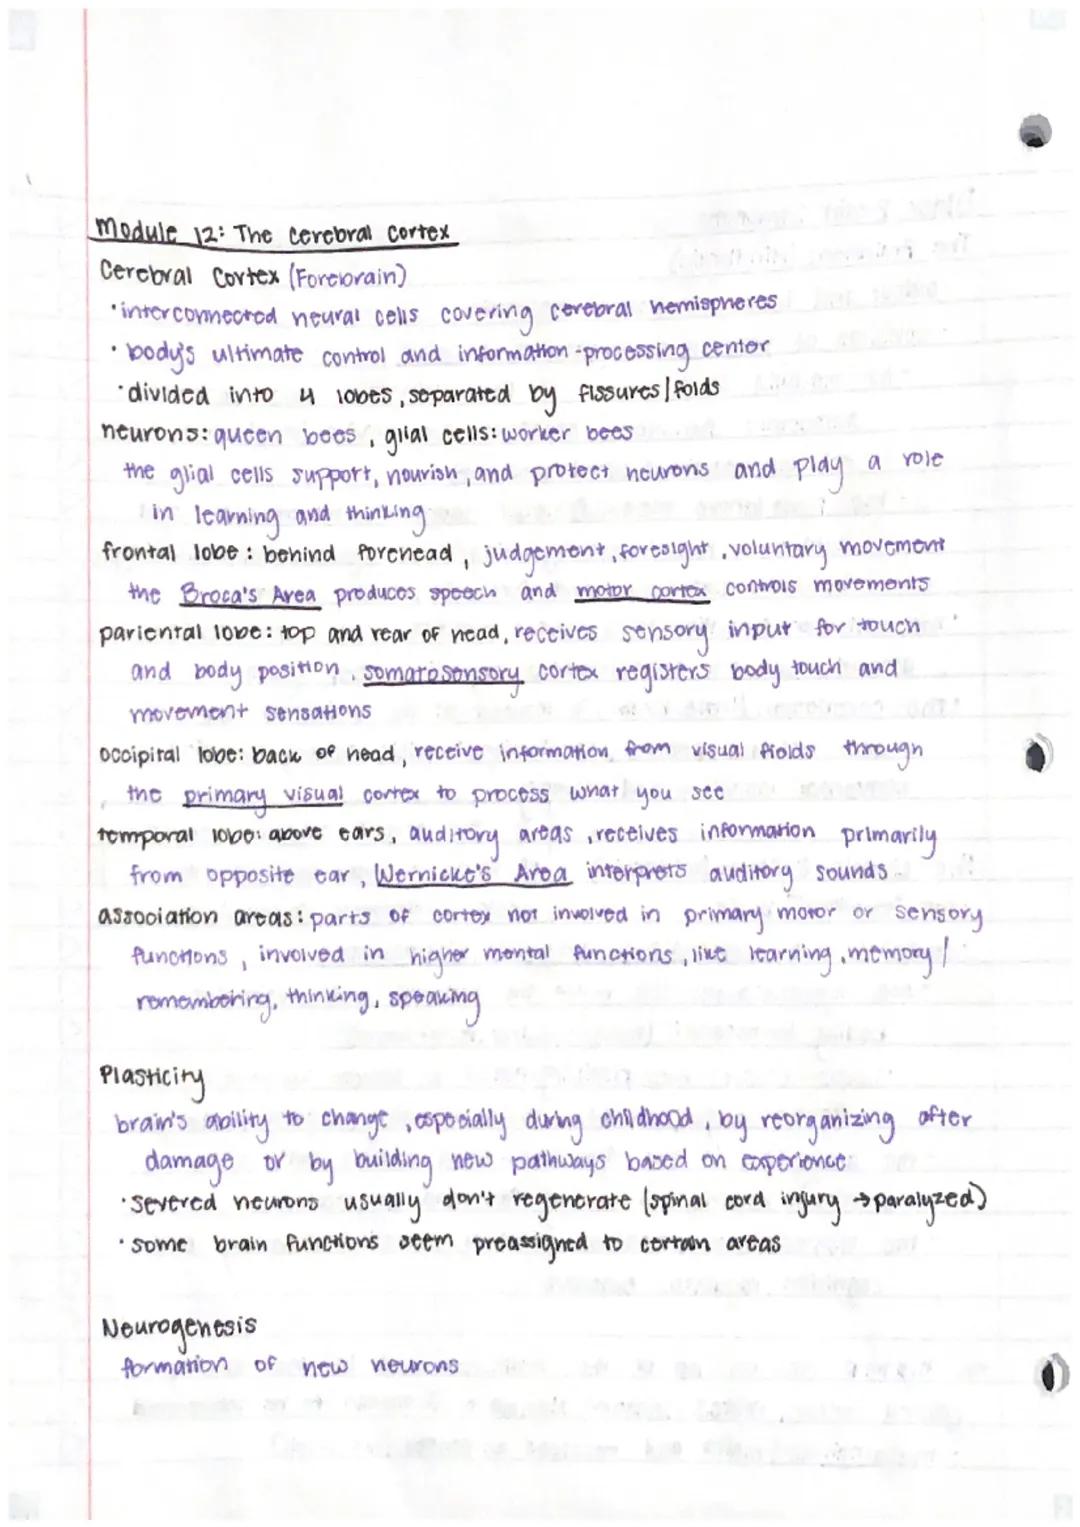 Module 12: The Cerebral Cortex
Cerebral Cortex (Forebrain)
• interconnected neural cells covering cerebral hemispheres
• body's ultimate control and information-processing center
• divided into 4 lobes, separated by fissures/folds
neurons: queen bees, glial cells: worker bees
the glial cells support, nourish, and protect neurons and play a role
in learning and thinking
frontal lobe: behind forehead, judgement, foresight, voluntary movement
the Broca's Area produces speech and motor cortex controls movements
pariental lobe: top and rear of head, receives sensory input for touch
and body position, somatosensory cortex registers body touch and
movement sensations
occipital lobe: back of head, receive information from visual fields through
the primary visual cortex to process what you see
temporal lobe: above ears, auditory areas, receives information primarily
from opposite ear, Wernicke's Area interprets auditory sounds
association areas: parts of cortex not involved in primary motor or sensory
functions, involved in higher mental functions, like learning, memory/
remembering, thinking, speaking
Plasticity
brain's ability to change, especially during childhood, by reorganizing after
damage or by building new pathways based on experience
• severed neurons usually don't regenerate (spinal cord injury → paralyzed)
• some brain functions seem preassigned to certain areas
Neurogenesis
formation of new neurons